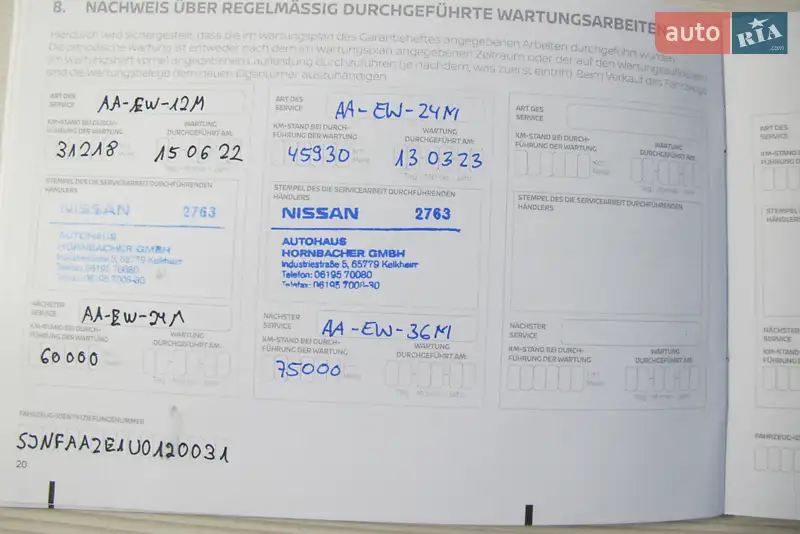 8. NACHWEIS ÜBER REGELMÄSSIG DURCHGEFÜHRTE WARTUNGSARBEITEN
auto RIA .com
Hierdurch wird sichergestellt, dass die im Wartungsplan des Garantieheftes angegebenen Arbeiten durchgeführt wurden.
Die periodische Wartung ist entweder nach dem im Wartungsplan angegebenen Zeitraum oder der auf den Wartungsaufklebern
im Wartungsheft vorne angegebenen Laufleistung durchzuführen (je nachdem, was zuerst eintritt). Beim Verkauf des Fahrzeugs
sind die Wartungsbelege dem neuen Eigentümer auszuhändigen.
ART DES SERVICE AA-EW-12M
KM-STAND BEI DURCH-
FÜHRUNG DER WARTUNG
WARTUNG
DURCHGEFÜHRT AM:
31218 15 06 22
STEMPEL DES DIE SERVICEARBEIT DURCHFÜHRENDEN
HÄNDLERS
NISSAN 2763
AUTOHAUS
HORNBACHER GMBH
Industriestraße 5, 65779 Kelkheim
Telefon: 06195 70080
Telefax: 06195 7008-30
NÄCHSTER
SERVICE AA-EW-24M
KM-STAND BEI DURCH-
FÜHRUNG DER WARTUNG
WARTUNG
DURCHGEFÜHRT AM:
60000
ART DES
SERVICE AA-EW-24M
KM-STAND BEI DURCH-
FÜHRUNG DER WARTUNG
WARTUNG
DURCHGEFÜHRT AM:
45930 13 03 23
STEMPEL DES DIE SERVICEARBEIT DURCHFÜHRENDEN
HÄNDLERS
NISSAN 2763
AUTOHAUS
HORNBACHER GMBH
Industriestraße 5, 65779 Kelkheim
Telefon: 06195 70080
Telefax: 06195 7008-30
NÄCHSTER
SERVICE AA-EW-36M
KM-STAND BEI DURCH-
FÜHRUNG DER WARTUNG
WARTUNG
DURCHGEFÜHRT AM:
75000
ART DES
SERVICE
KM-STAND BEI DURCH-
FÜHRUNG DER WARTUNG
WARTUNG
DURCHGEFÜHRT AM:
STEMPEL DES DIE SERVICEARBEIT DURCHFÜHRENDEN
HÄNDLERS
NÄCHSTER
SERVICE
KM-STAND BEI DURCH-
FÜHRUNG DER WARTUNG
WARTUNG
DURCHGEFÜHRT AM:
FAHRZEUG-IDENTIFIZIERUNGSNUMMER
SJNFAAZE1U0120031
20
ART DES
SERVICE
KM-STAND
FÜHRUNG
STEMPEL
HÄNDLERS
NÄCHSTER
SERVICE
KM-STAND
FÜHRUNG